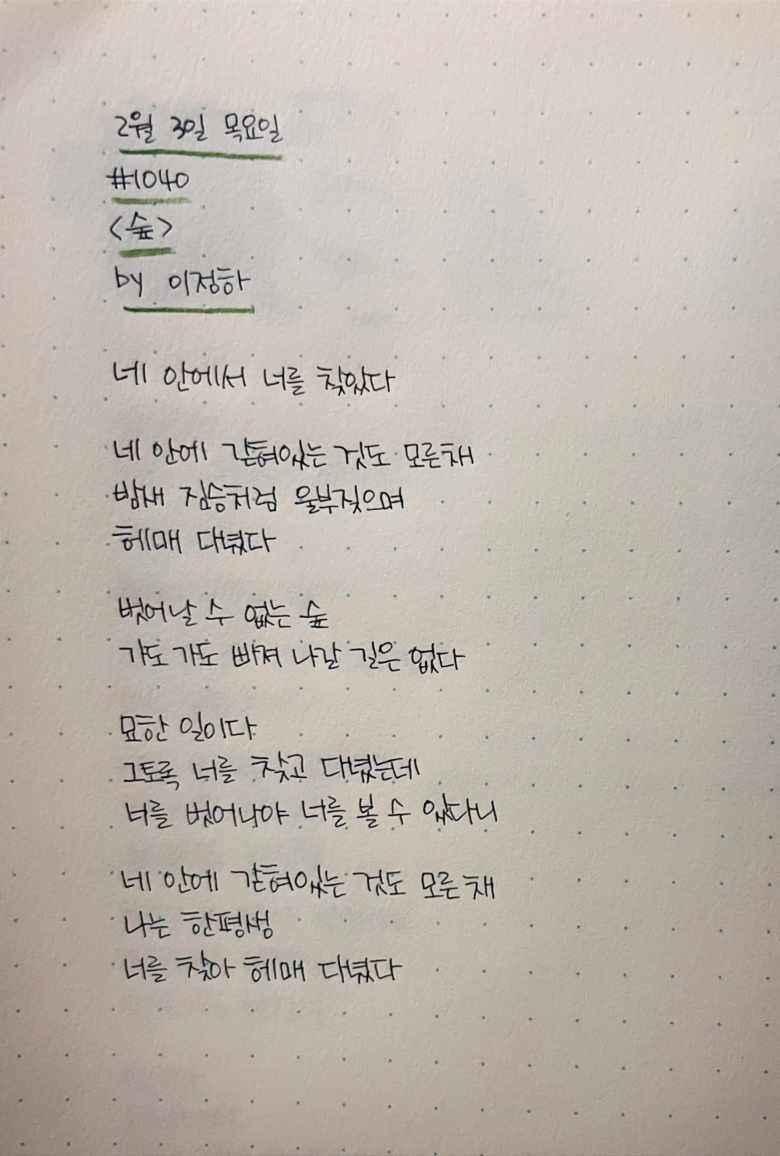 2월 3일 목요일
#1040
<숲>
by 이정하
네 안에서 너를 찾았다
네 안에 갇혀있는 것도 모른채
밤새 짐승처럼 울부짖으며
헤매 다녔다
벗어날 수 없는 숲
가도 가도 빠져 나갈 길은 없다
묘한 일이다
그토록 너를 찾고 다녔는데
너를 벗어나야 너를 볼 수 있다니
네 안에 갇혀있는 것도 모른 채
나는 한평생
너를 찾아 헤매 다녔다